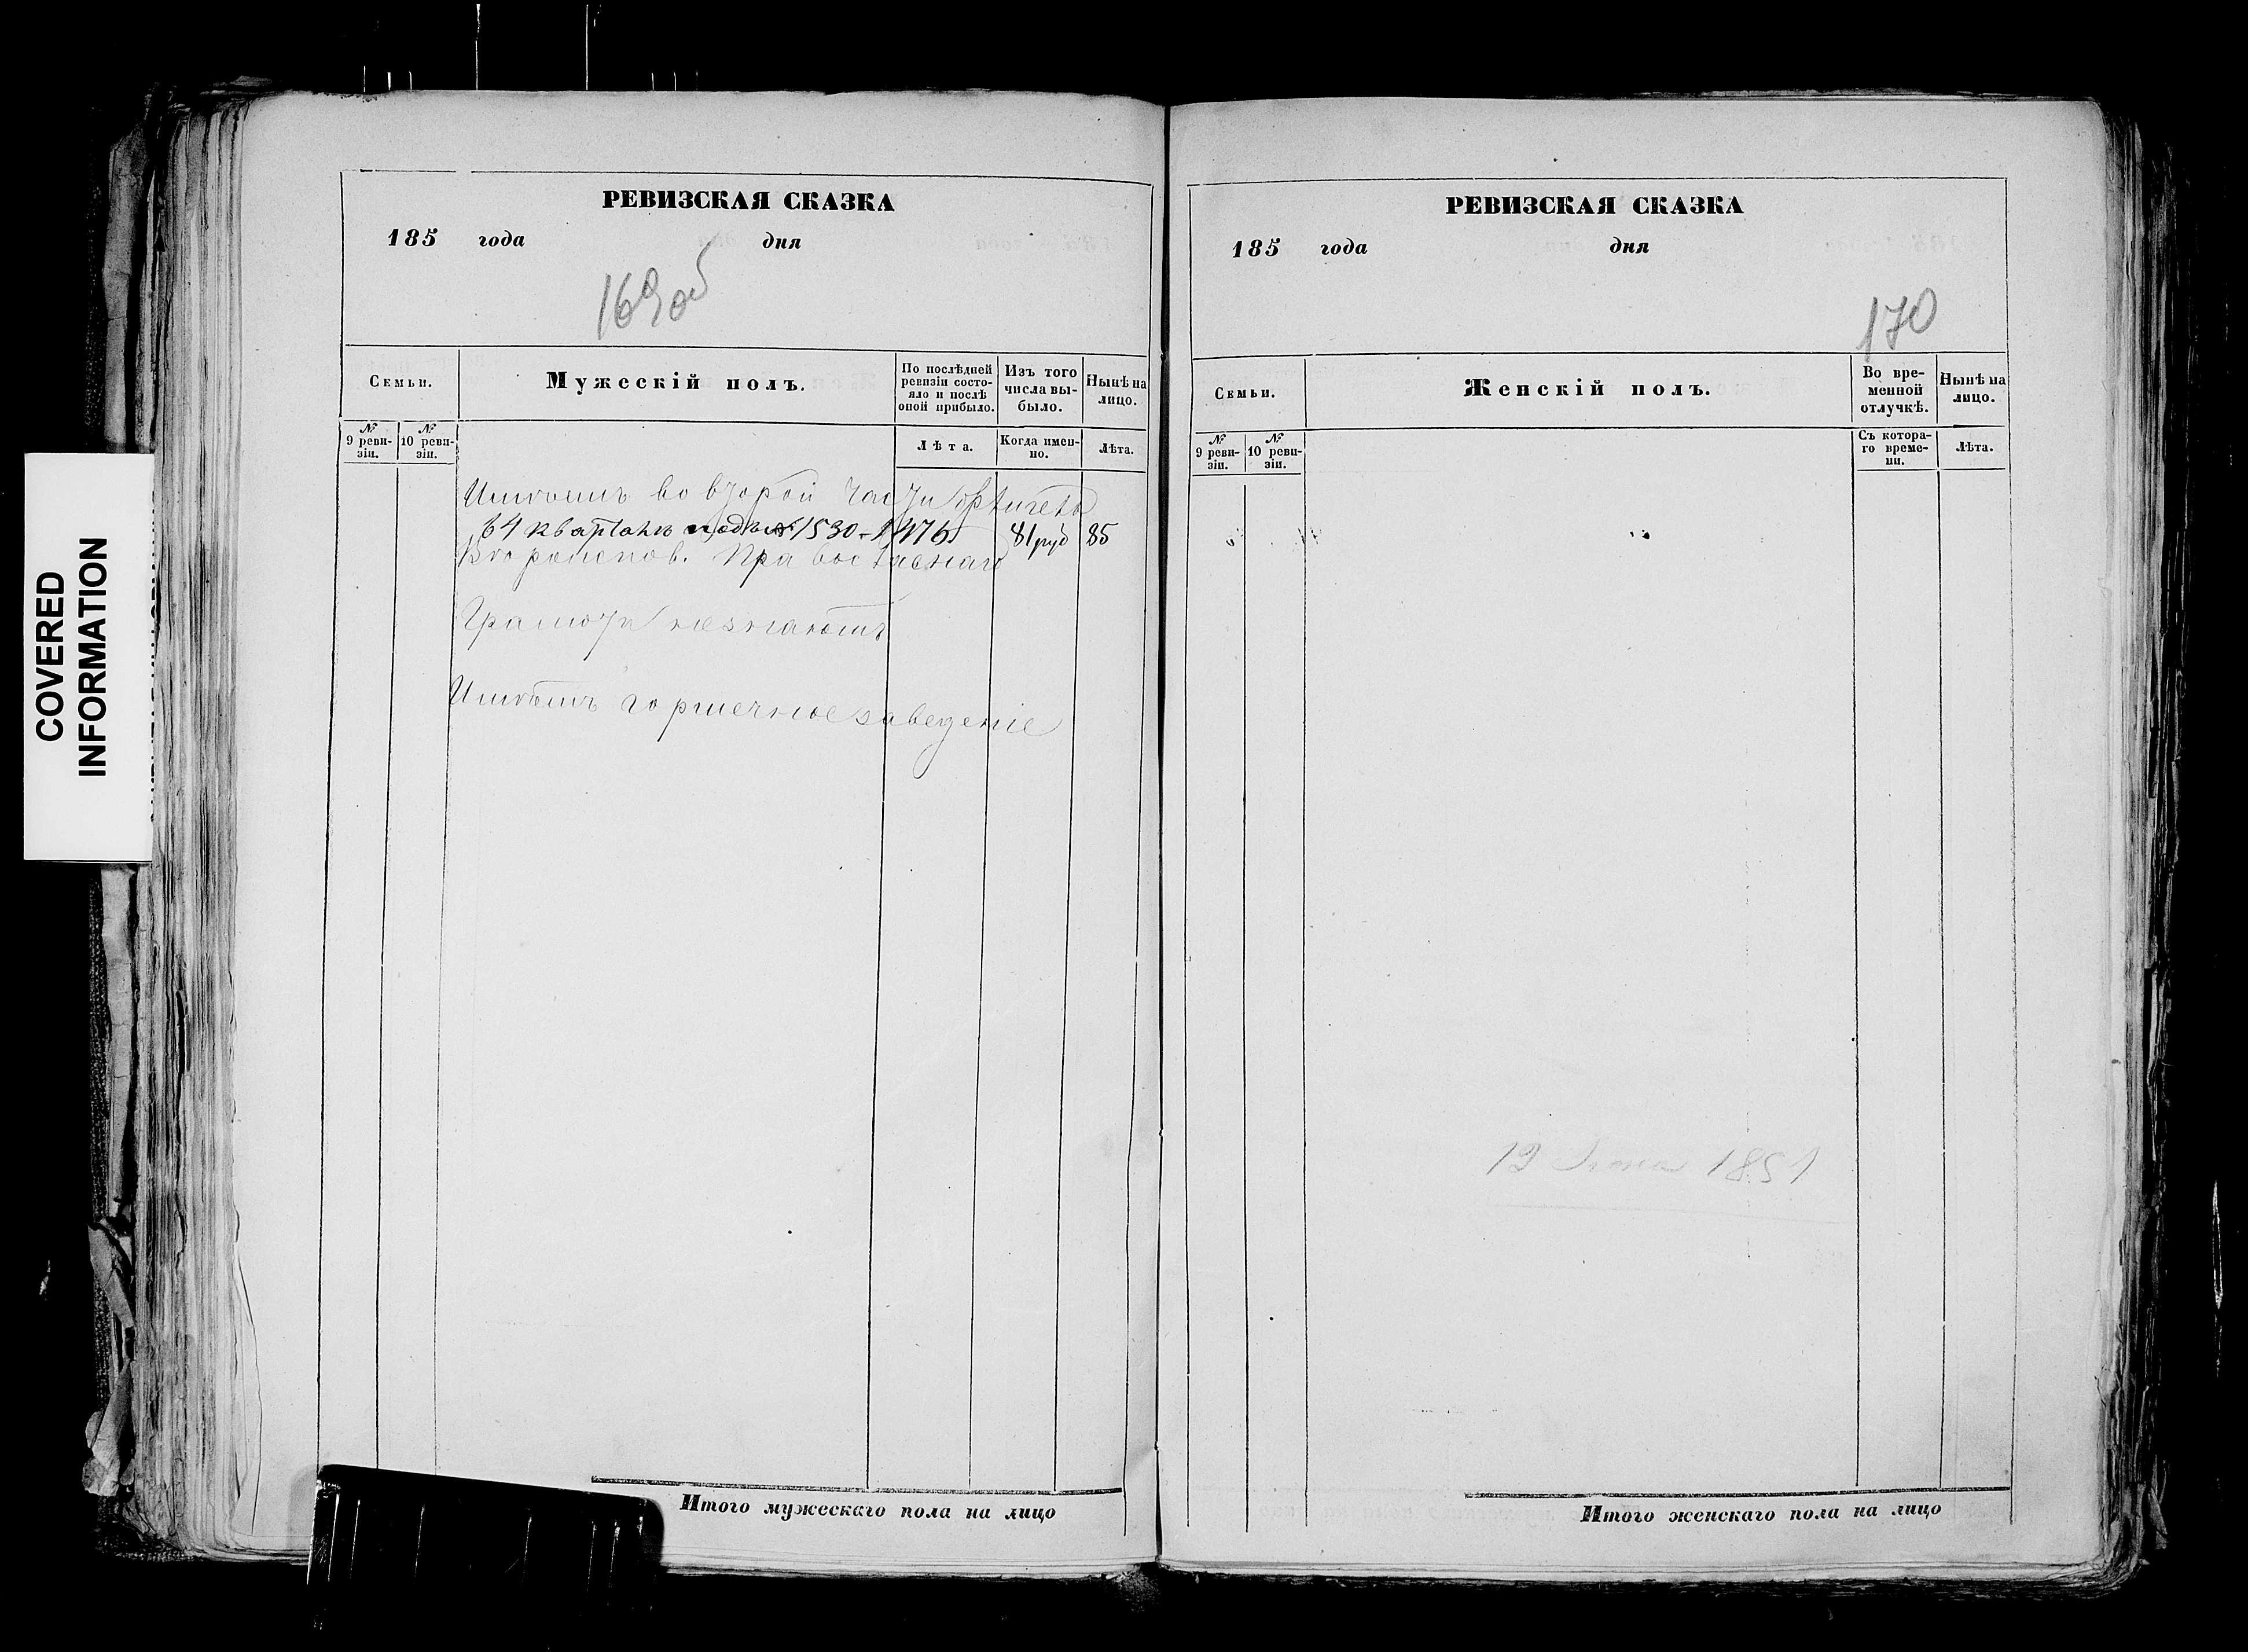 COVERED
INFORMATION
РЕВИЗСКАЯ СКАЗКА
185 года дня
169 об
Семьи.
Мужескій полъ.
По послѣдней ревизіи состо-
яло и послѣ
оной прибыло.
Изъ того
числа вы-
было.
Нынѣ на
лицо.
№ 9 реви-
зіи.
№ 10 реви-
зіи.
Лѣта.
Когда имен-
но.
Лѣта.
Имѣетъ во второй части
въ 4 кварталѣ подъ № 1530 - 1476 81 руб 85
Грамоти незнаютъ
Имѣетъ горшечное заведеніе
Итого мужескаго пола на лицо
РЕВИЗСКАЯ СКАЗКА
185 года дня
170
Семьи.
Женскій полъ.
Во вре-
менной
отлучкѣ.
Нынѣ на
лицо.
№ 9 реви-
зіи.
№ 10 реви-
зіи.
Съ котора-
го време-
ни.
Лѣта.
1851
Итого женскаго пола на лицо